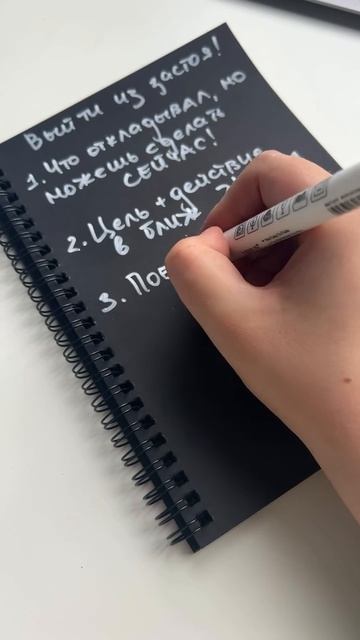 Выйти из застоя!
1. Что откладывал, но
можешь сделать
СЕЙЧАС!
2. Цель + действие
в ближ
3. Пое